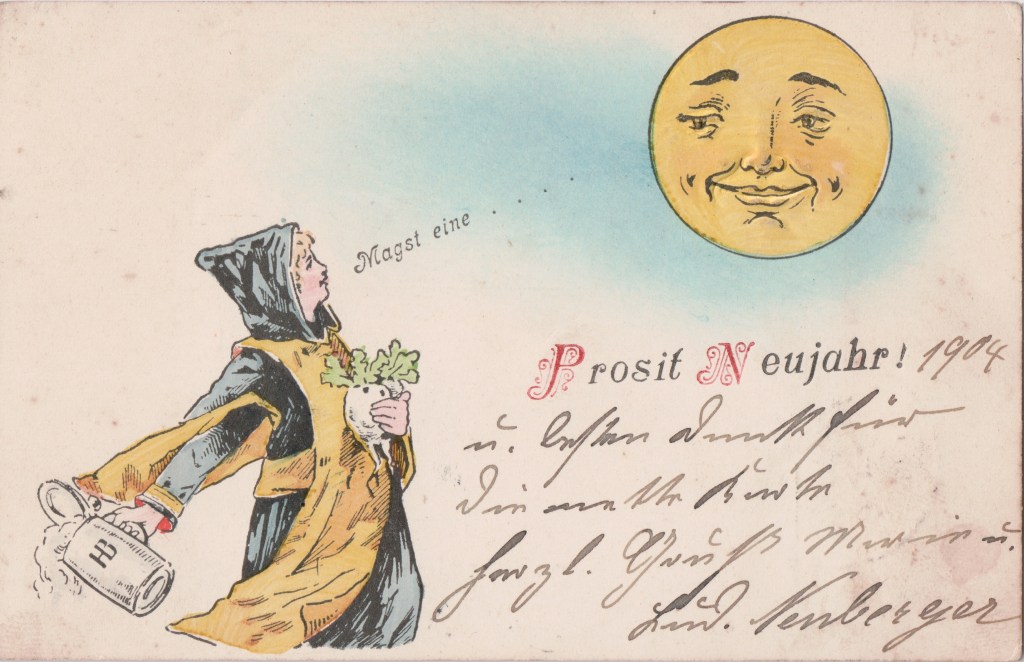 Magst eine . . .
Prosit Neujahr! 1904
u. besten Dank für
die nette Karte
herzl. Gruß Marie u.
Lud. Neuberger
HB